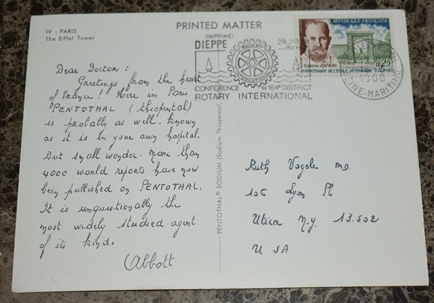 IV - PARIS
The Eiffel Tower
PRINTED MATTER
(IMPRIMÉ)
DIEPPE
CONFERENCE
164e DISTRICT
ROTARY INTERNATIONAL
REPUBLIQUE FRANÇAISE
Dear Doctor:
Greetings from the heart
of France! Here in Paris
PENTOTHAL (thiopental)
is probably as well-known
as it is in your own hospital.
But small wonder. More than
4000 world reports have now
been published on PENTOTHAL.
It is unquestionally the
most widely studied agent
of its kind.
Abbott
PENTOTHAL® SODIUM (Sodium Thiopental)
Ruth Vogele MD
Lyon Pl
Utica N.Y. 13.502
USA